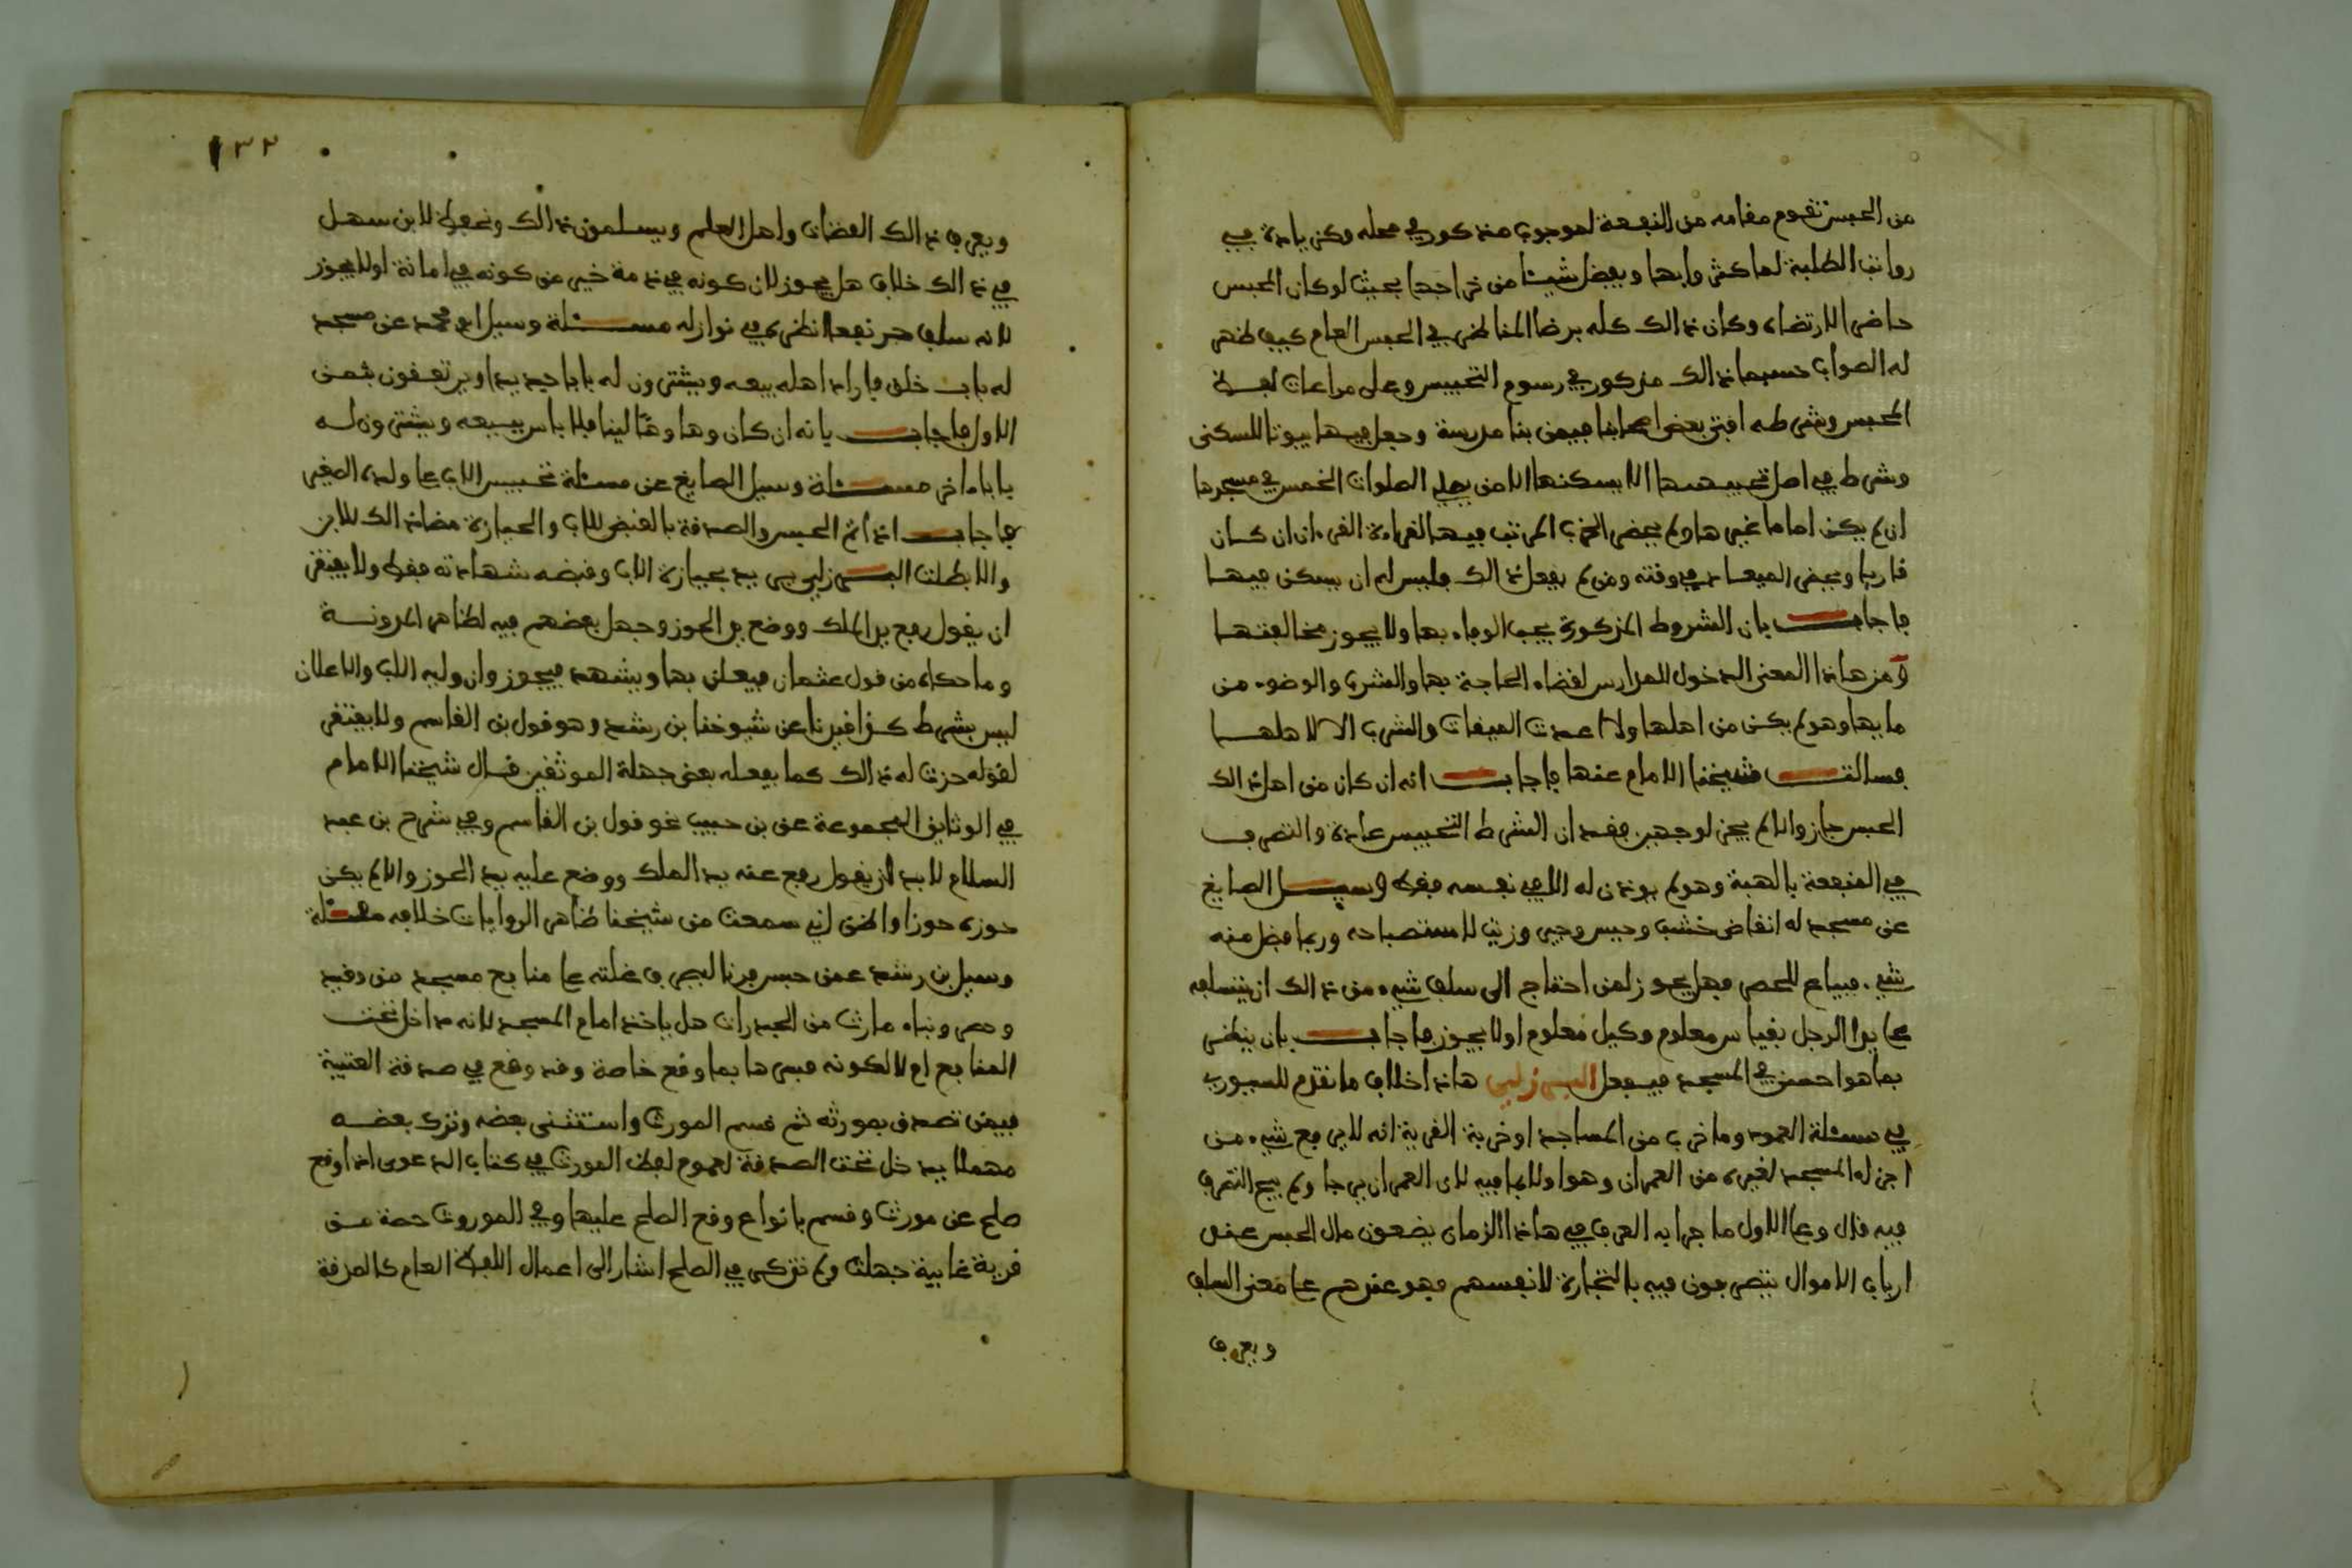 من الحبس تقوم مقامه من النفعة لموجب مذكور في محله وكزيادة في
رواتب الطلبة لما كثروا بها وبعض شيئا من خراجها بحيث لو كان المحبس
حاضرا لارتضاه وكان ذالك كله برضا الناظر في الحبس العام كيف ظهر
له الصواب حسبما ذالك مذكور في رسوم التحبيس وعلى مراعات لفظ
المحبس وشرطه افتى بعض اصحابنا فيمن بنا مدرسة وجعل فيها بيوتا للسكنى
وشرط في اصل تحبيسها الا يسكنها الا من يصلي الصلوات الخمس في مسجدها
ان لم يكن اماما لغيرها ولم يحضر الحزب المرتب فيها القراءة القرءان ان كان
قاريا ويحضر الميعاد في وقته ومن لم يفعل ذالك فليس له ان يسكن فيها
فاجاب بان الشروط المذكورة يجب الوفاء بها ولا يجوز مخالفتها
ومن هاذا المعنى الدخول للمدارس لقضاء الحاجة بها والشرب والوضوء من
مايها وهو لم يكن من اهلها ولا اعدت الميضات والشرب الا لاهلها
فسالت شيخنا الامام عنها فاجاب انه ان كان من اهل ذالك
الحبس جاز والا لم يجز لوجهين فقد ان الشرط التحبيس عادة والتصرف
في المنفعة بالهبة وهو لم يوذن له الا في نفسه فقط وسيل الصايغ
عن مسجد له انقاض خشب وجبس وجير وزيت للاستصباحه وربما فضل منه
شيء فيباع للحصر فهل يجوز لمن احتاج الى سلف شيء من ذالك ان يتسلفه
على يد الرجل بقياس معلوم وكيل معلوم او لا يجوز فاجاب بان ينظر
بما هو احسن في المسجد فيفعل البرزلي هاذا خلاف ما تقدم للسيوري
في مسئلة العمود وما خرب من المساجد او خربة القرية انه لا يرفع شيء من
اجزاء المسجد لغيره من العمران وهو اولا بما فيه لان العمران يرجا ولم يبح التصرف
فيه قال وعلى الاول ما جرا به العرف في هاذا الزمان يضعون مال الحبس عند
ارباب الاموال يتصرفون فيه بالتجارة لانفسهم فهو عندهم على معنى السلف
ويعرف
١٣٢
ويعرف ذالك القضات واهل العلم ويسلمون ذالك ونحفظ لابن سهل
في ذالك خلاف هل يجوز لان كونه في ذمة خير من كونه في امانة او لا يجوز
لانه سلف جر نفعا انظره في نوازله مسئلة وسيل ابو محمد عن مسجد
له باب خلق فاراد اهله بيعه ويشترون له بابا جديدا ويرتفقون بثمن
الاول فاجاب بانه ان كان وها وهنا لينا فلا باس ببيعه ويشترون له
بابا ءاخر مسئلة وسيل الصايغ عن مسئلة تحبيس الاب على ولده الصغير
فاجاب اذا تم الحبس والصدقة بالقبض للاب والحيازة مضا ذالك للابن
والا بطلت البرزلي يريد بحيازة الاب وقبضه شهادته فقط ولا يفتقر
ان يقول رفع يد الملك ووضع يد الحوز وجعل بعضهم فيه لظاهر المدونة
وما حكاه من قول عثمان فيعلن بها ويشهد فيجوز وان وليه الاب والاعلان
ليس بشرط كذا اخبرنا عن شيوخنا بن رشد وهو قول بن القاسم ولا يفتقر
لقوله حزت له ذالك كما يفعله بعض جهلة الموثقين قال شيخنا الامام
في الوثايق المجموعة عن بن حبيب نحو قول بن القاسم وفي شرح بن عبد
السلام لا بد ان يقول رفع عنه يد الملك ووضع عليه يد الحوز والا لم يكن
حوزه حوزا واظن اني سمعت من شيخنا ظاهر الروايات خلافه مسئلة
وسيل بن رشد عمن حبس فرنا ليصرف غلته على منافع مسجد من وقيد
وحصر وبناء ما رث من الجدرات هل ياخذ امام المسجد لانه داخل تحت
المنافع ام لا لكونه فسرها بما وقع خاصة وقد وقع في صدقة العتبية
فيمن تصدق بمورثه ثم قسم المورث واستثنى بعضه وترك بعضه
مهملا يدخل تحت الصدقة لعموم لفظ المورث في كتاب الدعوى اذا وقع
صلح عن مورث وقسم بانواع وقع الصلح عليها وفي الموروث حصة من
قرية غايبة جهلت ولم تذكر في الصلح اشار الى اعمال اللفظ العام كالصدقة